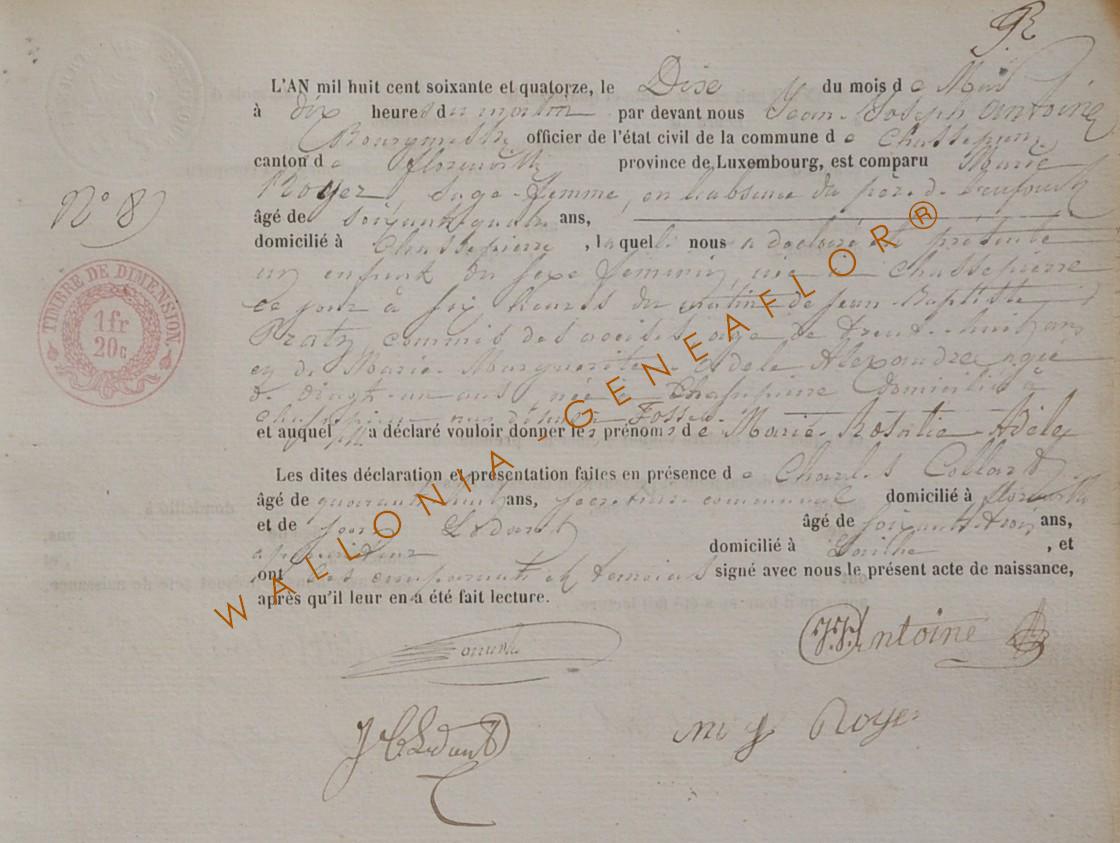 L'AN mil huit cent soixante et quatorze, le Dix du mois de Mai
à dix heures du matin par devant nous Jean-Joseph Antoine
Bourgmestre officier de l'état civil de la commune de Chassepierre
canton de Florenville province de Luxembourg, est comparu Marie
Royer Sage-femme, en l'absence du père
âgé de soixante quatre ans,
domicilié à Chassepierre, laquelle nous a déclaré et présenté
un enfant du sexe féminin née à Chassepierre
ce jour à six heures du matin de Jean-Baptiste
Pratz, commis des accises âgé de trente-huit ans
et de Marie-Marguerite-Adele Alexandre agée
de vingt-un ans, née à Chassepierre domiciliés à
Chassepierre
et auquel a déclaré vouloir donner les prénoms de Marie-Rosalie-Adèle
Les dites déclaration et présentation faites en présence de Charles Collard
âgé de quarante huit ans, secrétaire communal domicilié à Florenville
et de Ledant âgé de soixante trois ans,
domicilié à , et
ont les comparant et témoins signé avec nous le présent acte de naissance,
après qu'il leur en a été fait lecture.
N° 8
TIMBRE DE DIMENSION
1 fr
20 c
J.J. Antoine
J C Ledant
m j Royer
WALLONIA-GENEAFLOR®